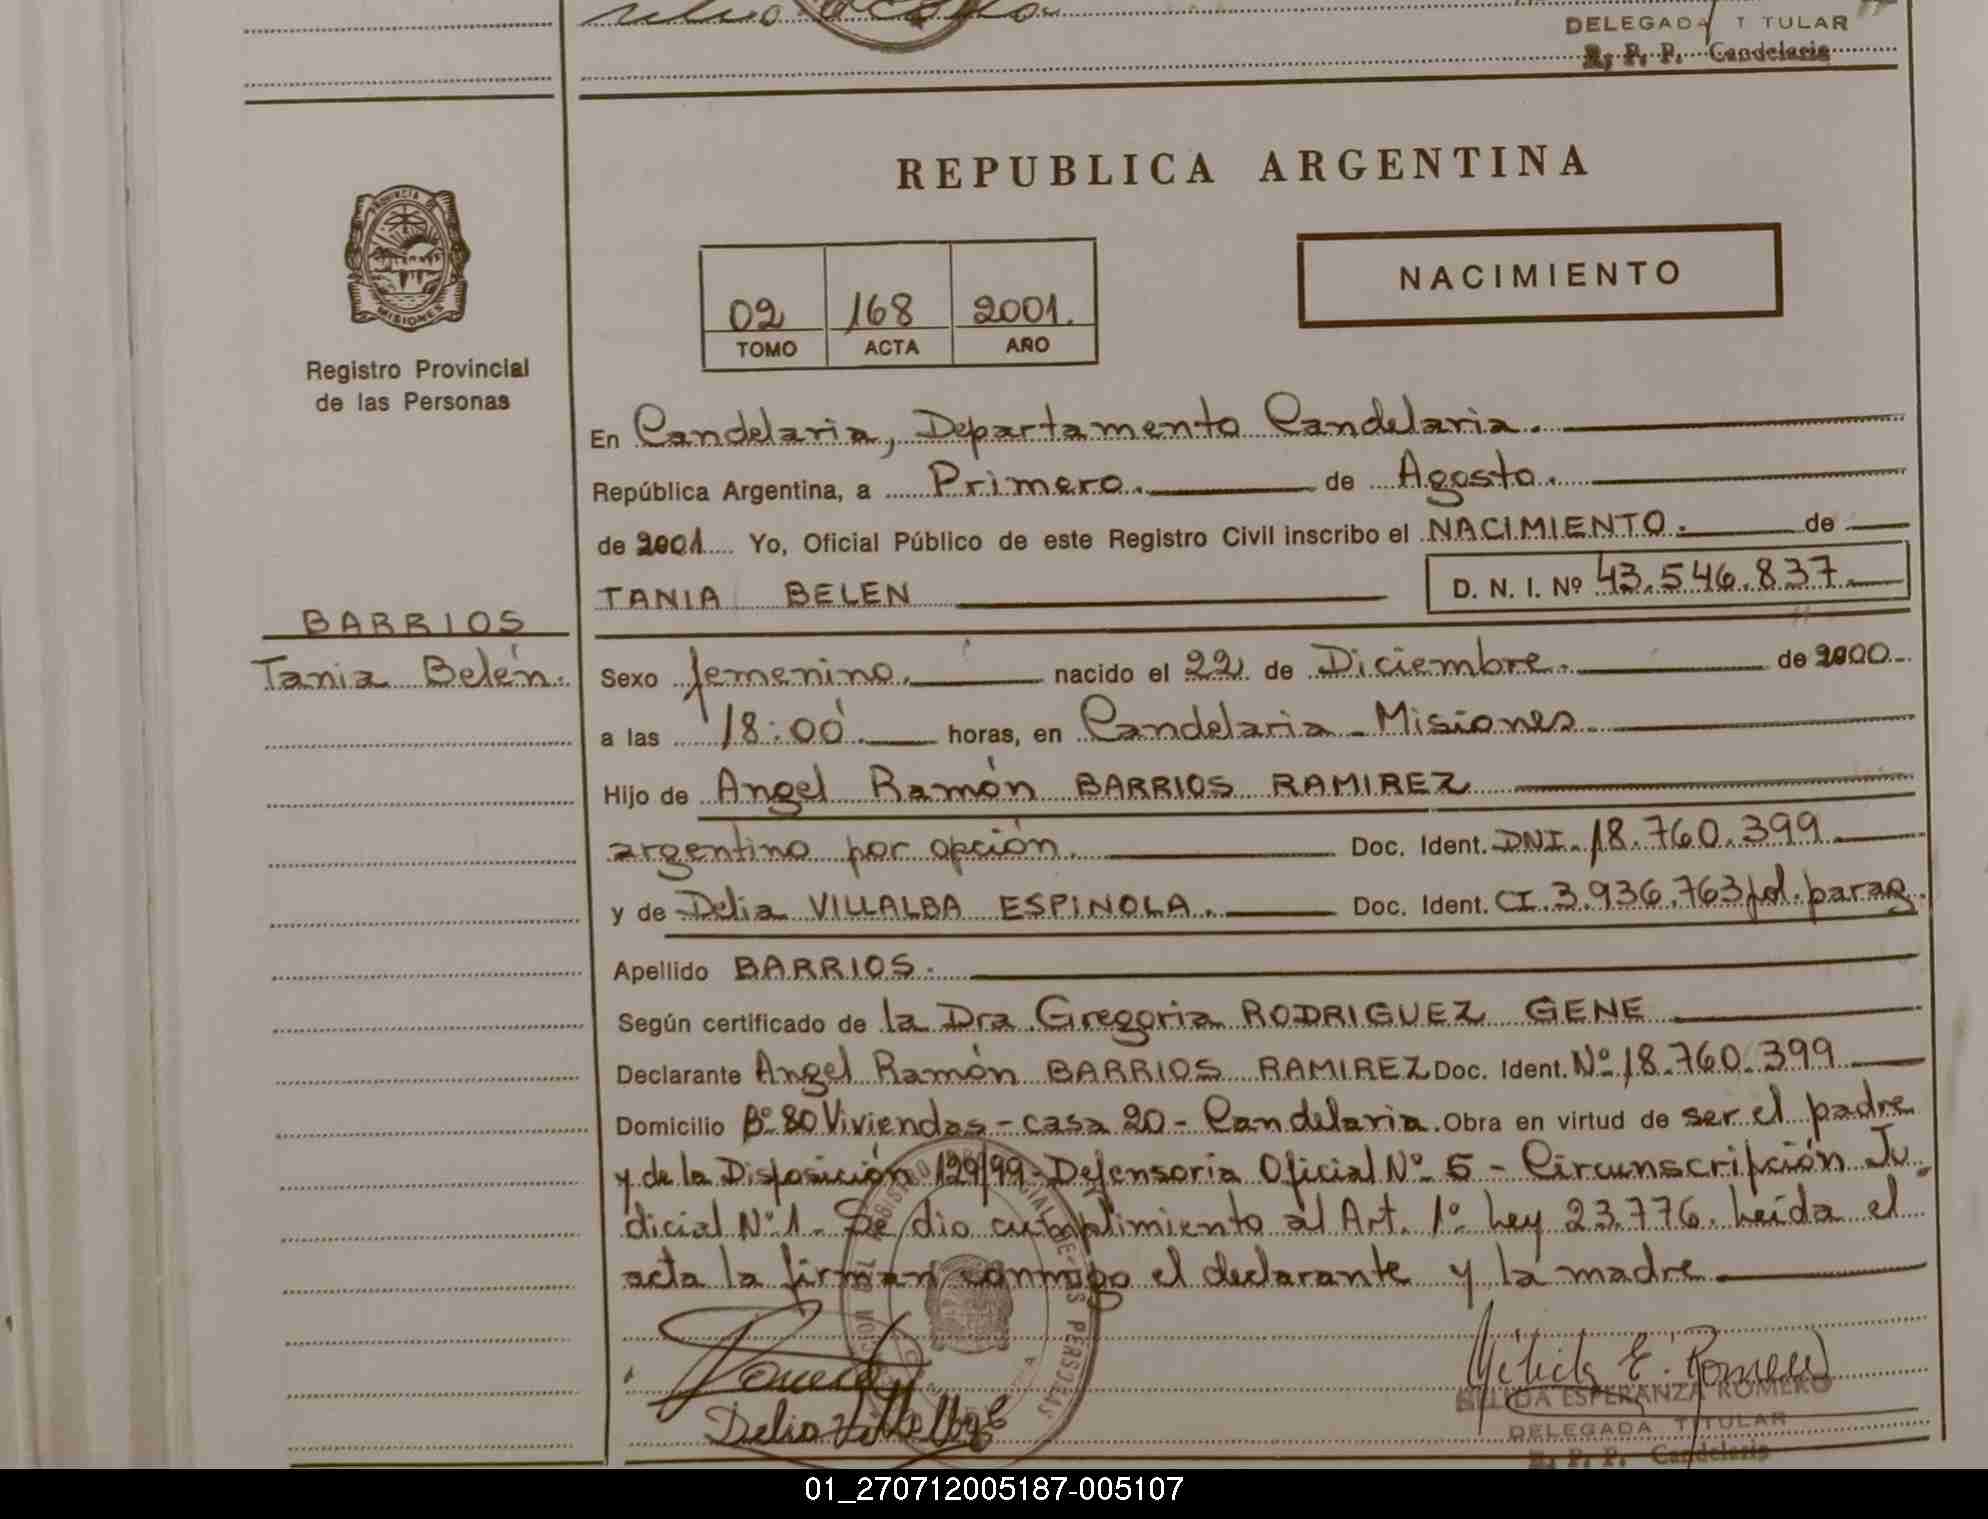 DELEGADA TITULAR
R. P. P. Candelaria
REPUBLICA ARGENTINA
PROVINCIA DE
MISIONES
Registro Provincial
de las Personas
02 168 2001.
TOMO ACTA AÑO
NACIMIENTO
En Candelaria, Departamento Candelaria.
República Argentina, a Primero. de Agosto.
de 2001 Yo, Oficial Público de este Registro Civil inscribo el NACIMIENTO. de
TANIA BELEN D. N. I. Nº 43.546.837
BARRIOS
Tania Belén.
Sexo femenino. nacido el 22 de Diciembre. de 2000
a las 18:00 horas, en Candelaria - Misiones
Hijo de Angel Ramón BARRIOS RAMIREZ
argentino por opción. Doc. Ident. DNI. 18.760.399
y de Delia VILLALBA ESPINOLA. Doc. Ident. CI. 3.936.763 pol. parag.
Apellido BARRIOS.
Según certificado de la Dra Gregoria RODRIGUEZ GENE
Declarante Angel Ramón BARRIOS RAMIREZ Doc. Ident. Nº 18.760.399
Domicilio Bº 80 Viviendas - casa 20 - Candelaria. Obra en virtud de ser el padre
y de la Disposición 129/99 - Defensoria Oficial Nº 5 - Circunscripción Ju
dicial Nº 1 - Se dio cumplimiento al Art. 1º Ley 23.776. Leída el
acta la firman conmigo el declarante y la madre
Delia Villalba E
NELIDA ESPERANZA ROMERO
DELEGADA TITULAR
R. P. P. Candelaria
01_270712005187-005107